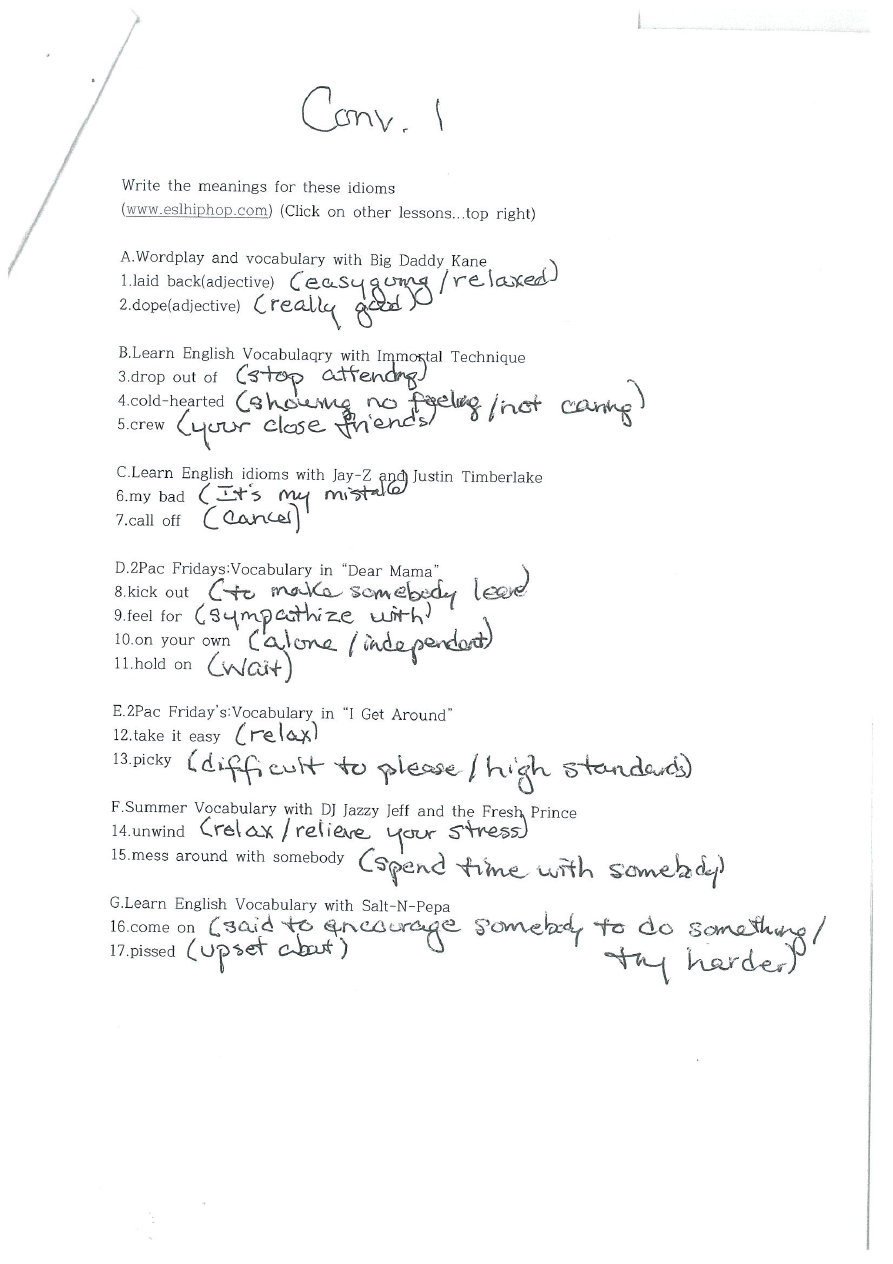 Conv. 1
Write the meanings for these idioms
(www.eslhiphop.com) (Click on other lessons...top right)
A.Wordplay and vocabulary with Big Daddy Kane
1.laid back(adjective) (easygoing/relaxed)
2.dope(adjective) (really good)
B.Learn English Vocabulaqry with Immortal Technique
3.drop out of (stop attending)
4.cold-hearted (showing no feeling/not caring)
5.crew (your close friends)
C.Learn English idioms with Jay-Z and Justin Timberlake
6.my bad (It's my mistake)
7.call off (cancel)
D.2Pac Fridays:Vocabulary in "Dear Mama"
8.kick out (to make somebody leave)
9.feel for (sympathize with)
10.on your own (alone/independent)
11.hold on (wait)
E.2Pac Friday's:Vocabulary in "I Get Around"
12.take it easy (relax)
13.picky (difficult to please/high standards)
F.Summer Vocabulary with DJ Jazzy Jeff and the Fresh Prince
14.unwind (relax/relieve your stress)
15.mess around with somebody (spend time with somebody)
G.Learn English Vocabulary with Salt-N-Pepa
16.come on (said to encourage somebody to do something/
try harder)
17.pissed (upset about)